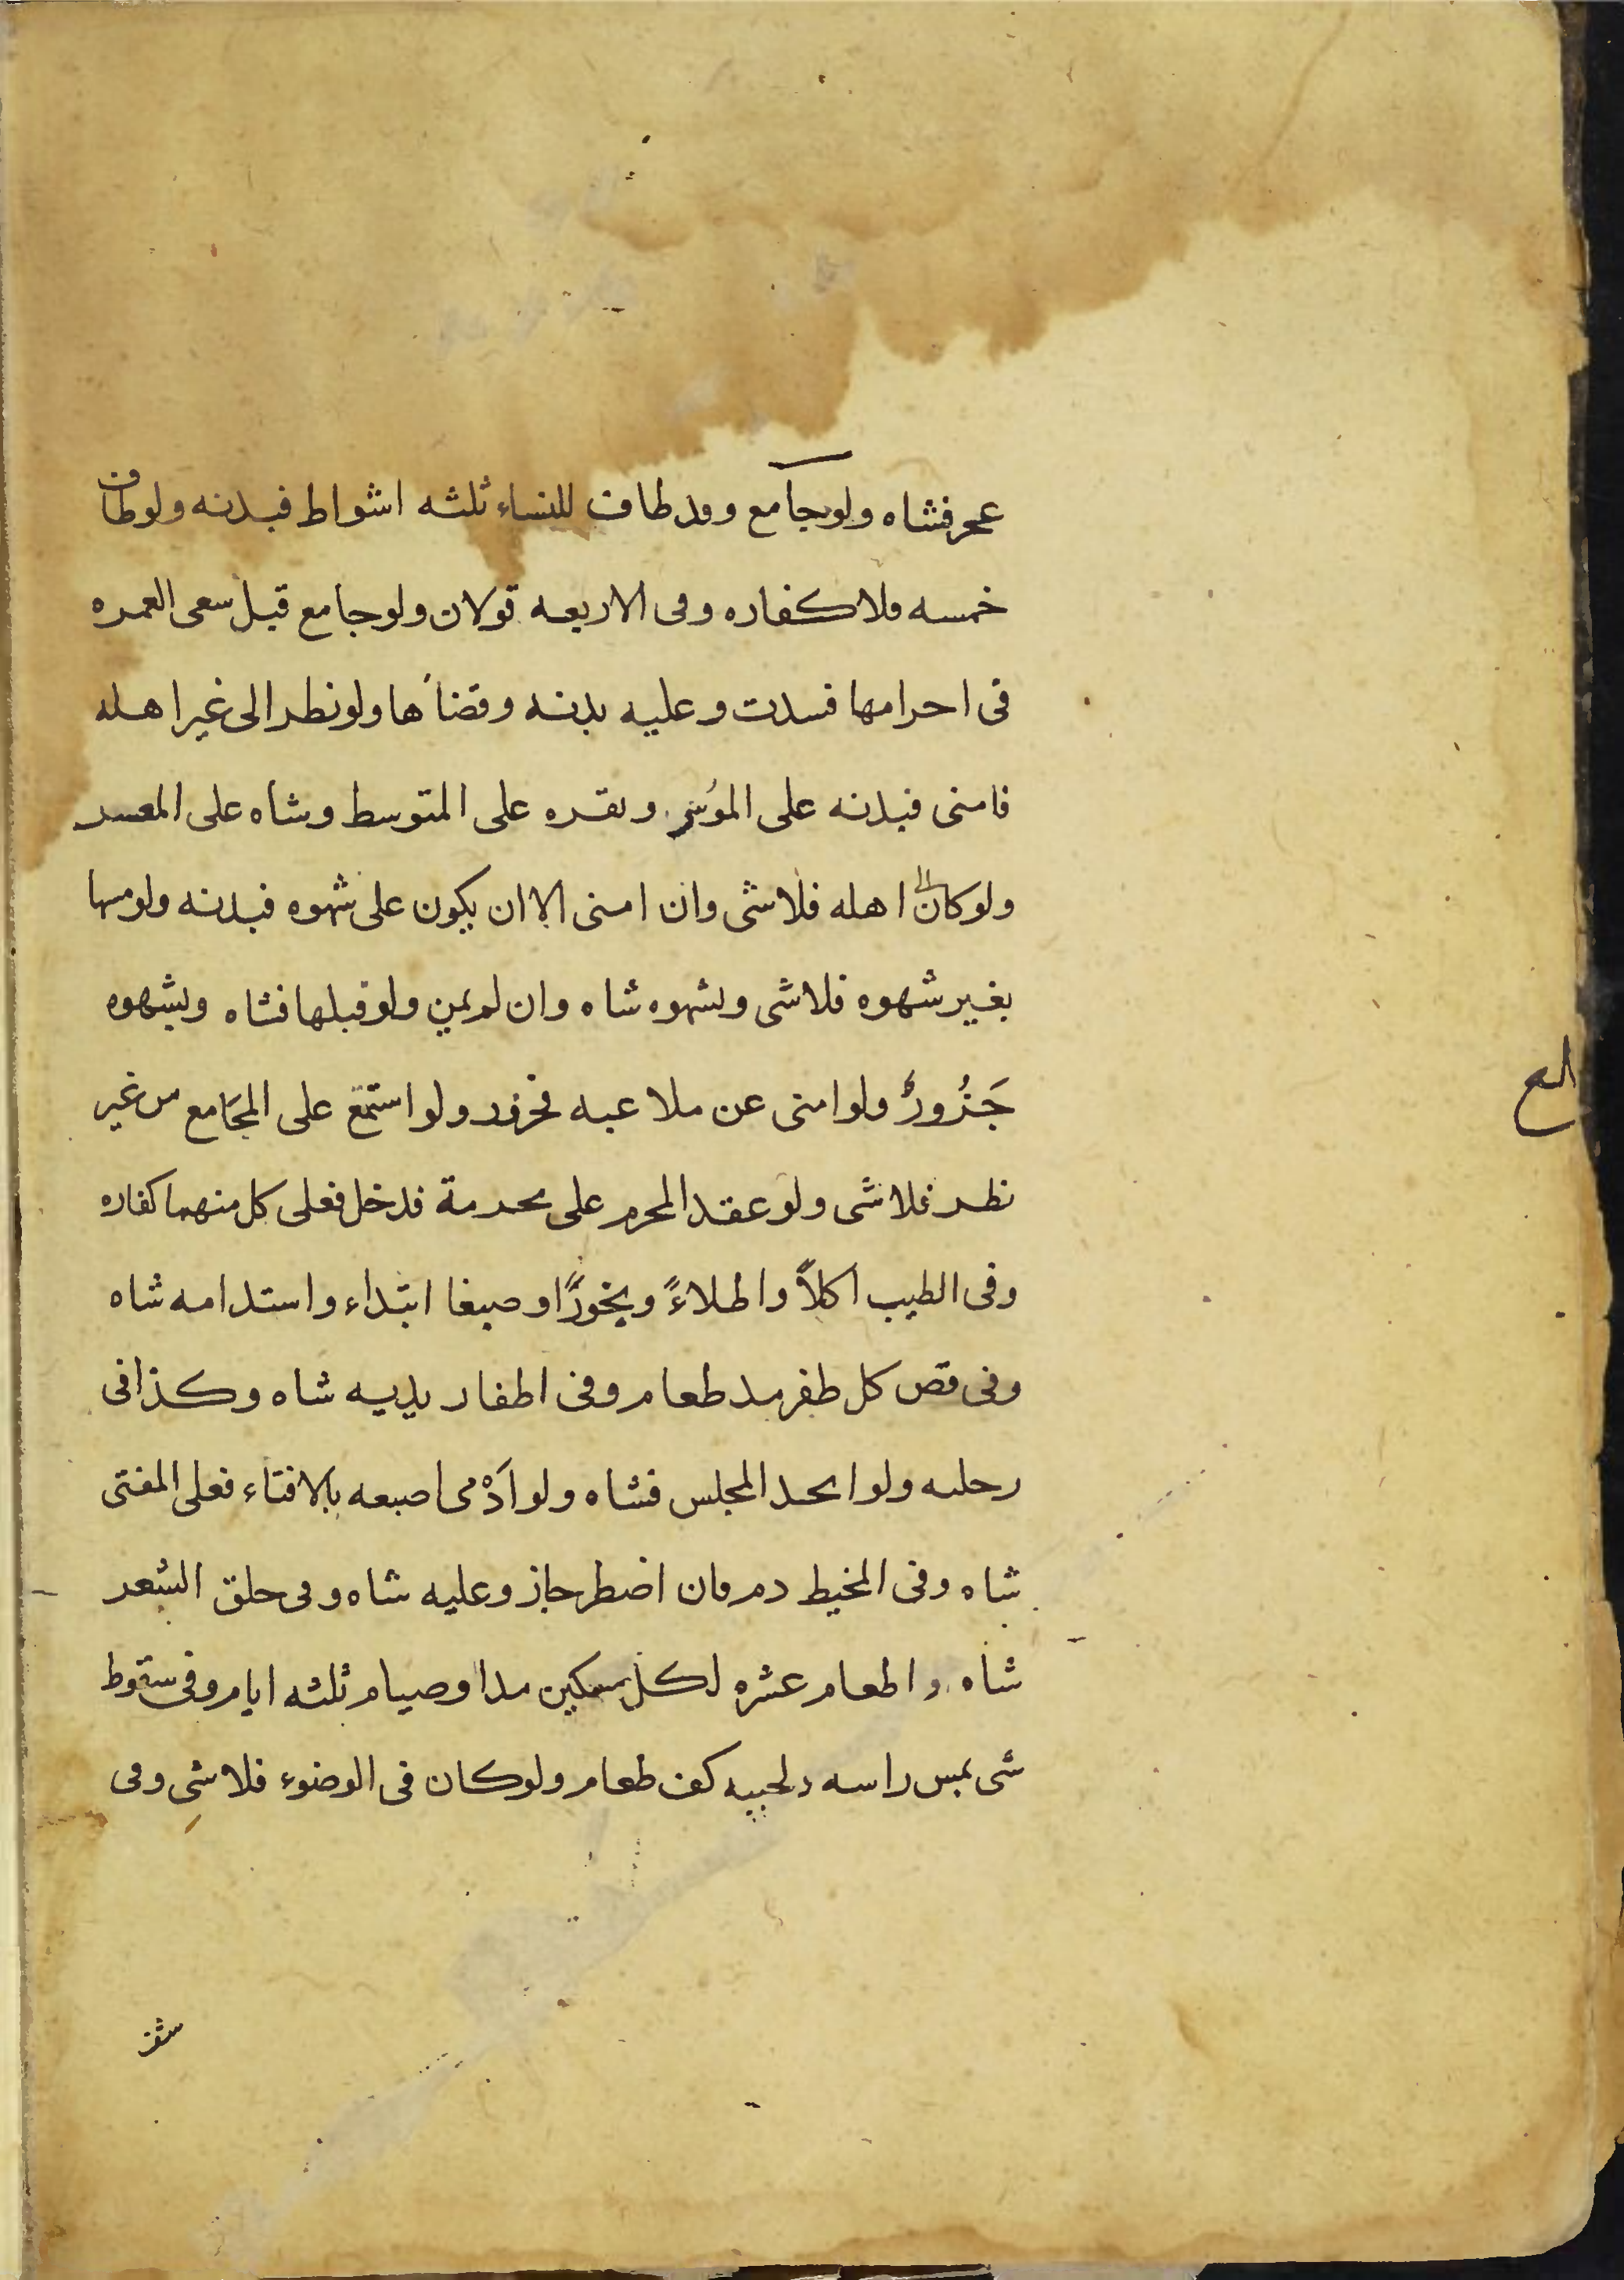 عجز فشاه ولو جامع وقد طاف للنساء ثلثه اشواط فبدنه ولو طاف
خمسه فلا كفاره وفى الاربعه قولان ولو جامع قبل سعى العمره
فى احرامها فسدت وعليه بدنه وقضاءها ولو نظر الى غير اهله
فامنى فبدنه على الموُسر وبقره على المتوسط وشاه على المعسر
ولو كان الى اهله فلا شى وان امنى الا ان يكون على شهوه فبدنه ولو مسها
بغير شهوه فلا شى وبشهوه شاه وان لم يمن ولو قبلها فشاه وبشهوه
جَزُورٌ ولو امنى عن ملاعبه فجزور ولو استمع على المجَامع من غير
نظر فلا شى ولو عقد المحرم على محرمة فدخل فعلى كل منهما كفاره
وفى الطيب اكلاً واطلاءً وبخورًا وصبغا ابتداء واستدامه شاه
وفى قص كل ظفر مد طعام وفى اظفار يديه شاه وكذا فى
رجليه ولو اتحد المجلس فشاه ولو ادْمى اصبعه بالافتاء فعلى المفتى
شاه وفى المخيط دم فان اضطر جاز وعليه شاه وفى حلق الشعر
شاه او اطعام عشره لكل مسكين مد او صيام ثلثه ايام وفى سقوط
شى بمس راسه ولحييه كف طعام ولو كان فى الوضوء فلا شى وفى